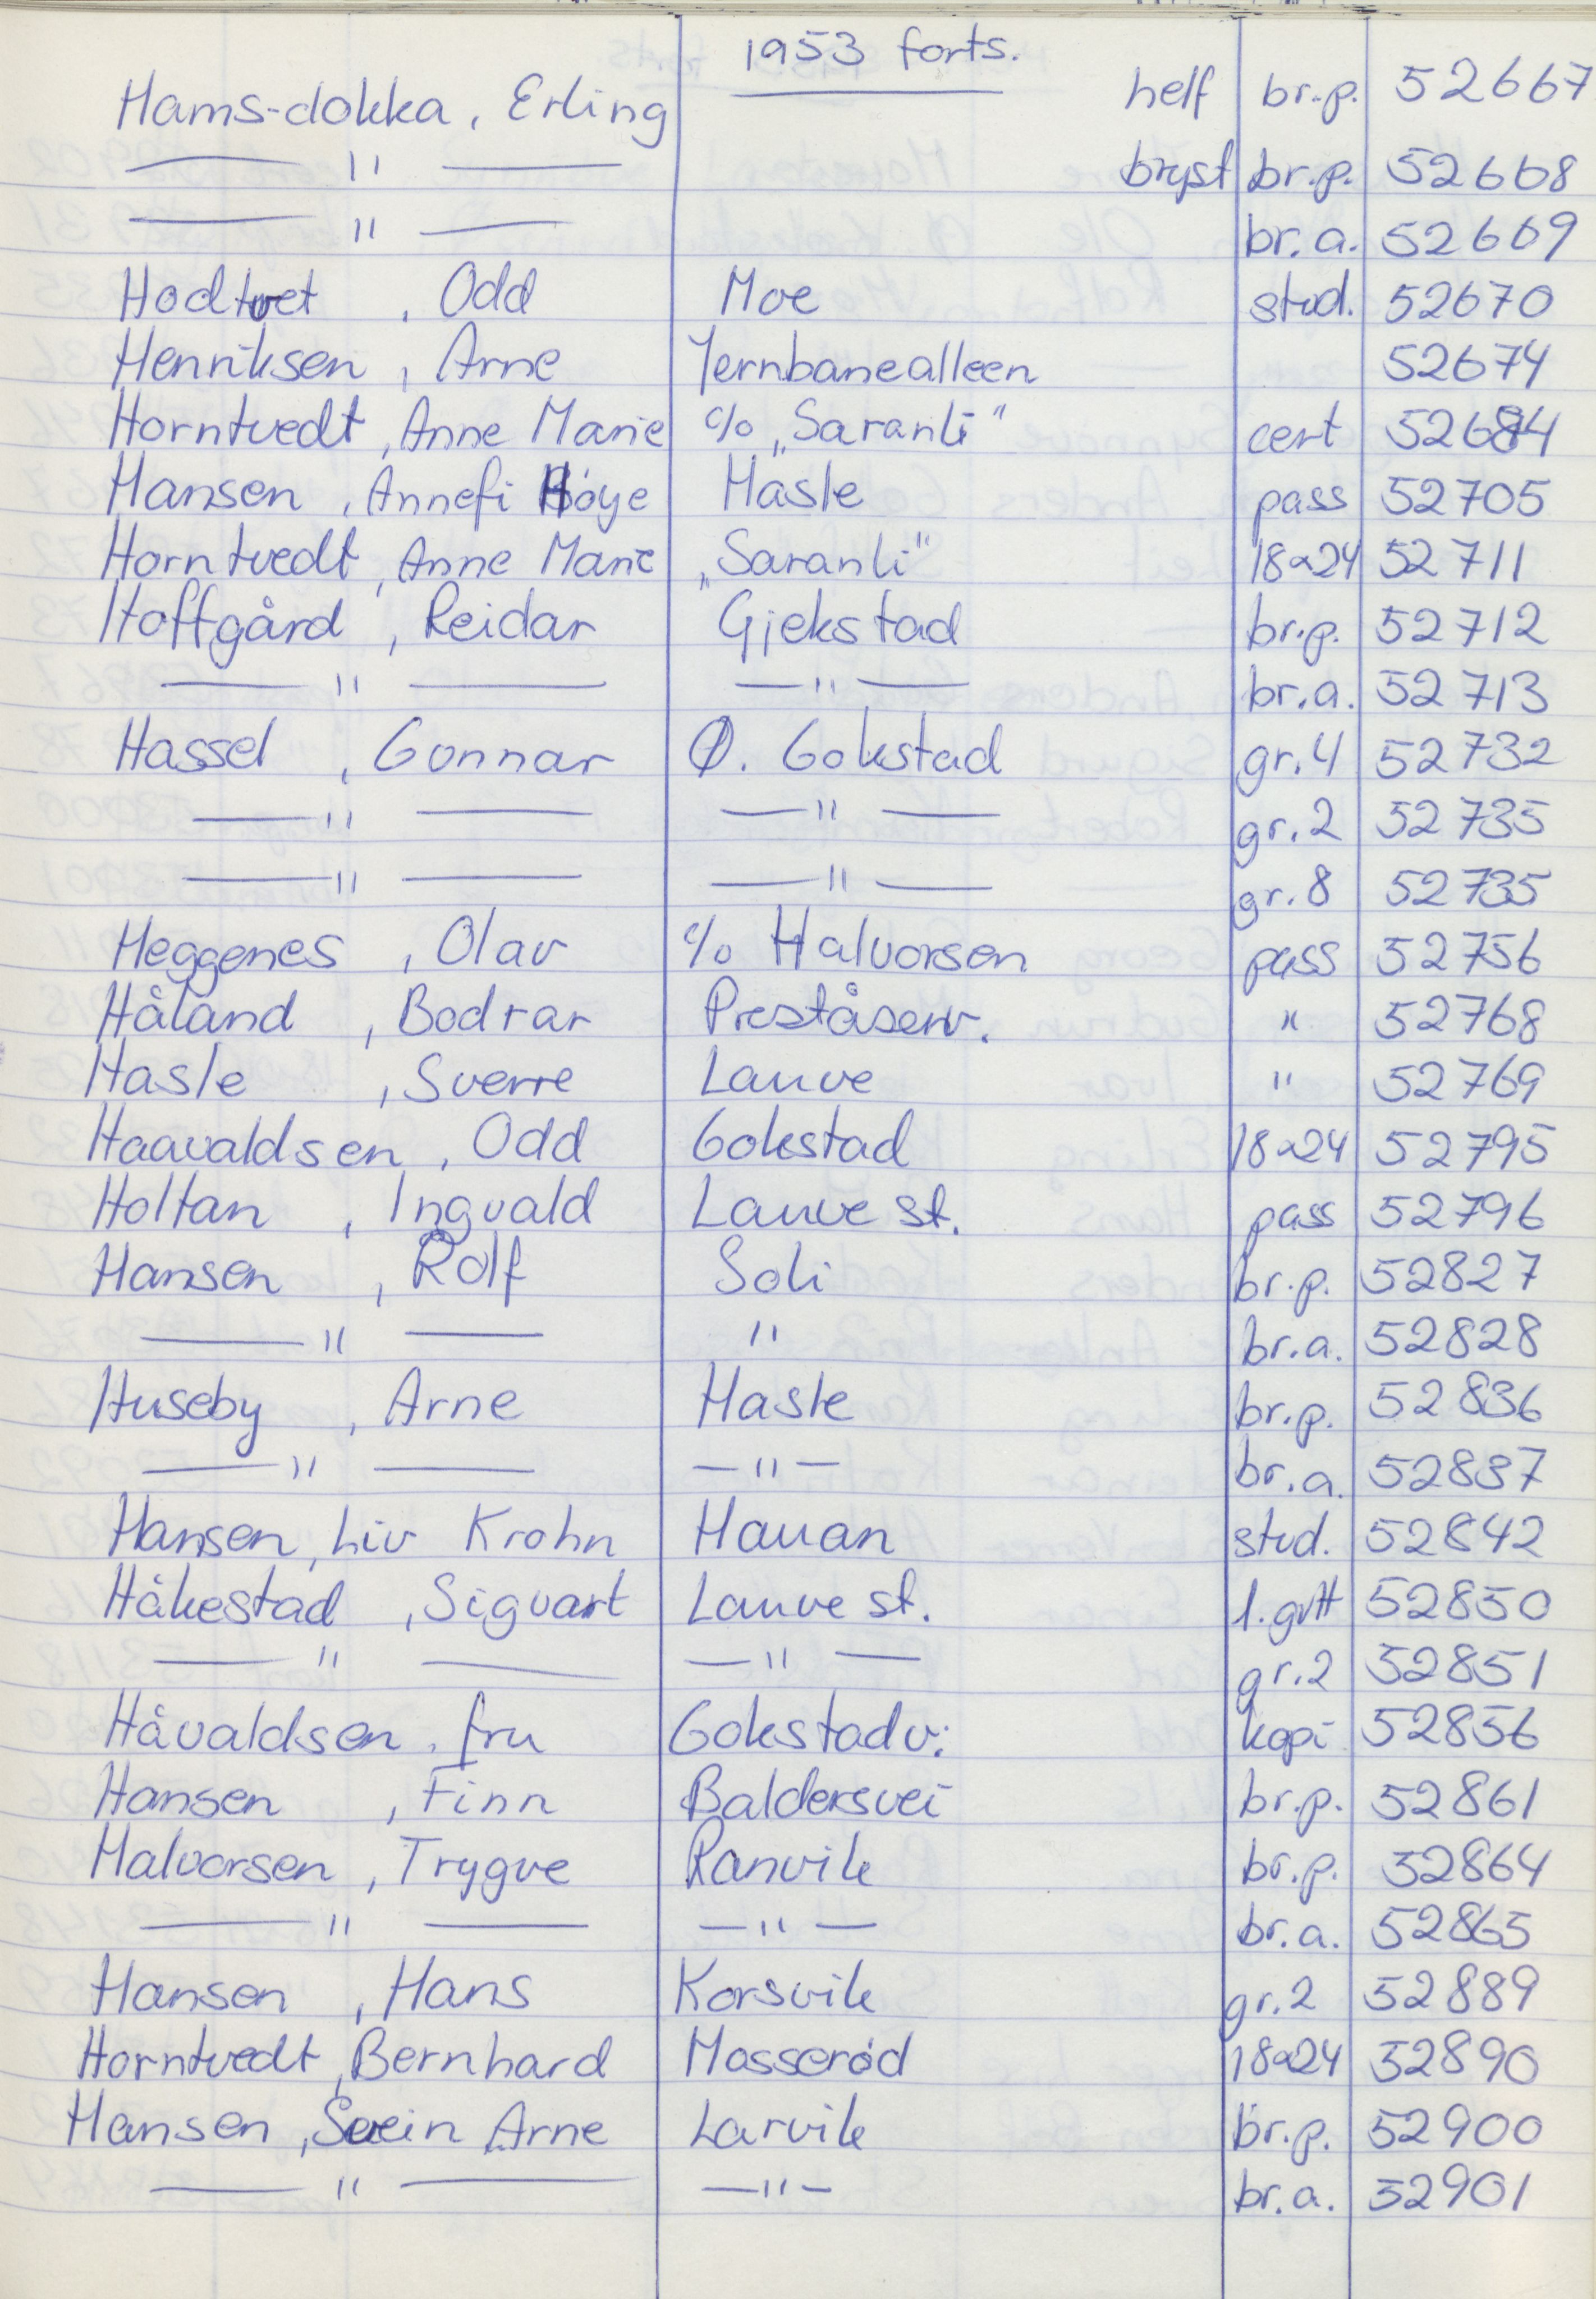 1953 forts.
Hams-dokka, Erling helf br.p. 52667
— " — bryst br.p. 52668
— " — br.a. 52669
Hodtvet, Odd Moe stud. 52670
Henriksen, Arne Jernbanealleen 52674
Horntvedt, Anne Marie c/o „Saranli" cert 52684
Hansen, Annefi Höye Hasle pass 52705
Horntvedt, Anne Marie „Saranli" 18x24 52711
Hoffgård, Reidar Gjekstad br.p. 52712
— " — — " — br.a. 52713
Hassel, Gunnar Ø. Gokstad gr.4 52732
— " — — " — gr.2 52735
— " — — " — gr.8 52735
Heggenes, Olav c/o Halvorsen pass 52756
Håland, Bodrar Preståserv. " 52768
Hasle, Sverre Lauve " 52769
Haavaldsen, Odd Gokstad 18x24 52795
Holtan, Ingvald Lauve st. pass 52796
Hansen, Rolf Soli br.p. 52827
— " — " br.a. 52828
Huseby, Arne Hasle br.p. 52836
— " — — " — br.a. 52837
Hansen, Liv Krohn Hauan stud. 52842
Håkestad, Sigvart Lauve st. 1.gr# 52850
— " — — " — gr.2 52851
Håvaldsen, fru Gokstadv: kopi 52856
Hansen, Finn Baldersvei br.p. 52861
Halvorsen, Trygve Ranvik br.p. 52864
— " — — " — br.a. 52865
Hansen, Hans Korsvik gr.2 52889
Horntvedt, Bernhard Mosserød 18x24 52890
Hansen, Svein Arne Larvik br.p. 52900
— " — — " — br.a. 52901